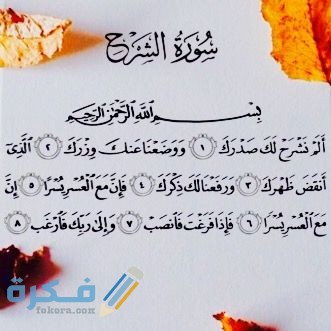 سُورَةُ الشَّرْحِ
بِسْمِ اللَّهِ الرَّحْمَٰنِ الرَّحِيمِ
أَلَمْ نَشْرَحْ لَكَ صَدْرَكَ ١ وَوَضَعْنَا عَنكَ وِزْرَكَ ٢ الَّذِي
أَنقَضَ ظَهْرَكَ ٣ وَرَفَعْنَا لَكَ ذِكْرَكَ ٤ فَإِنَّ مَعَ الْعُسْرِ يُسْرًا ٥ إِنَّ
مَعَ الْعُسْرِ يُسْرًا ٦ فَإِذَا فَرَغْتَ فَانصَبْ ٧ وَإِلَىٰ رَبِّكَ فَارْغَب ٨
فكرة
fekora.com